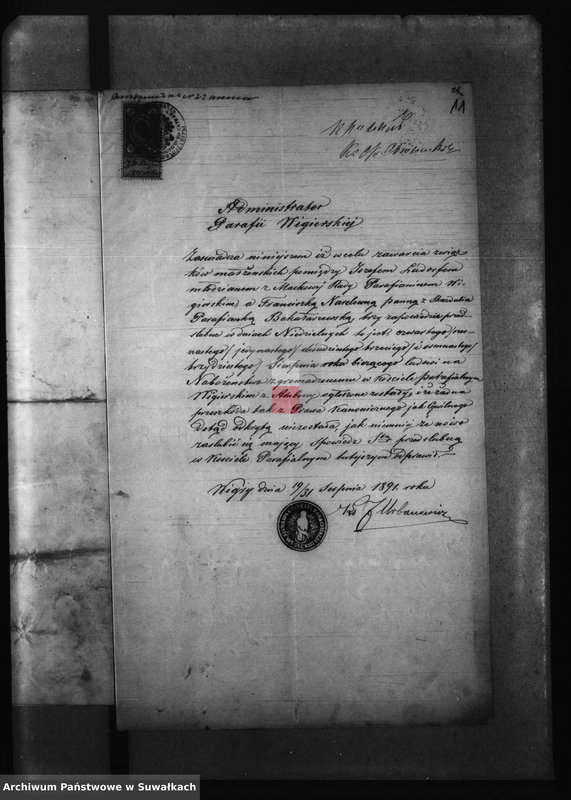 11
Administrator
Parafii Wigierskiej
Zaświadcza niniejszem iż w celu zawarcia związ-
ków małżeńskich pomiędzy Józefem Ludorfem
młodzianem z Maćkowej Rudy Parafianinem Wi-
gierskim a Franciszką Narchuną panną z
Parafianką Bakałarzewską, trzy zapowiedzie przed
ślubne w dniach Niedzielnych to jest: czwartego/sze-
nastego/ jedynastego/dwudziestego trzeciego/ i osmnastego/
trzydziestego/ Sierpnia roku bieżącego ludowi na
Nabożeństwo zgromadzonemu w Kościele parafialnym
Wigierskim z Ambony ogłoszone zostały i że żadna
przeszkoda tak z Prawa Kanonicznego jak Cywilnego
dotąd odkrytą niezostała, jak niemniej że nowo
zaślubić się mający Spowiedź Stą przedślubną
w Kościele Parafialnym tutejszym odprawił.
Wigry dnia 19/31 Sierpnia 1891 roku
Xds J Urbanowicz
Archiwum Państwowe w Suwałkach